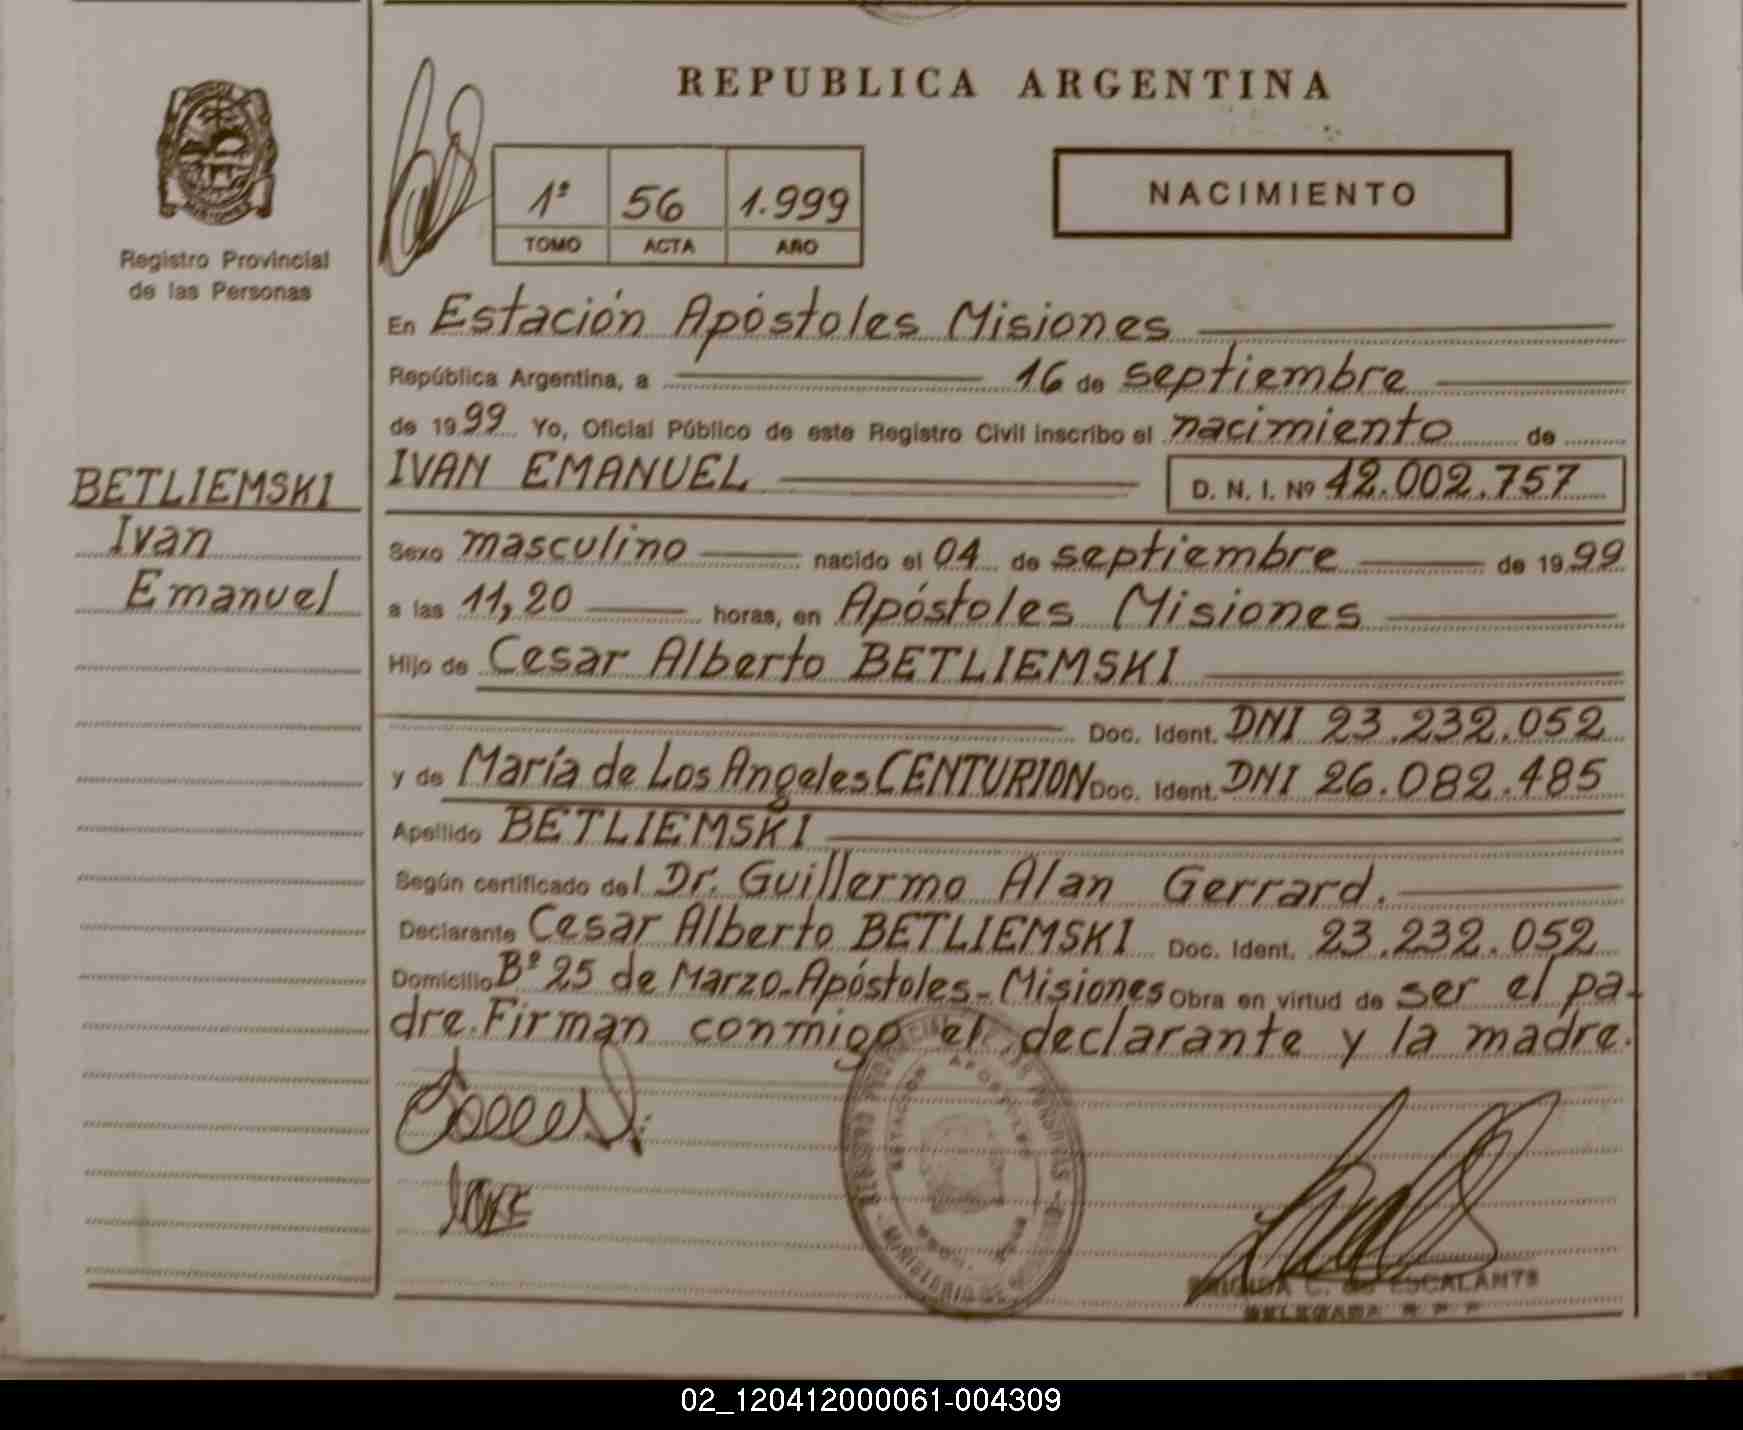 REPUBLICA ARGENTINA
Registro Provincial
de las Personas
MISIONES
1º 56 1.999
TOMO ACTA AÑO
NACIMIENTO
En Estación Apóstoles Misiones
República Argentina, a 16 de septiembre
de 1999 Yo, Oficial Público de este Registro Civil inscribo el nacimiento de
IVAN EMANUEL D. N. I. Nº 42.002.757
BETLIEMSKI
Ivan
Emanuel
Sexo masculino nacido el 04 de septiembre de 1999
a las 11,20 horas, en Apóstoles Misiones
Hijo de Cesar Alberto BETLIEMSKI
Doc. Ident. DNI 23.232.052
y de María de Los Angeles CENTURION Doc. Ident. DNI 26.082.485
Apellido BETLIEMSKI
Según certificado del Dr. Guillermo Alan Gerrard.
Declarante Cesar Alberto BETLIEMSKI Doc. Ident. 23.232.052
Domicilio Bº 25 de Marzo-Apóstoles-Misiones Obra en virtud de ser el pa-
dre. Firman conmigo el declarante y la madre.
ESTACION APOSTOLES
C. de ESCALANTE
DELEGADA R. P. P.
02_120412000061-004309